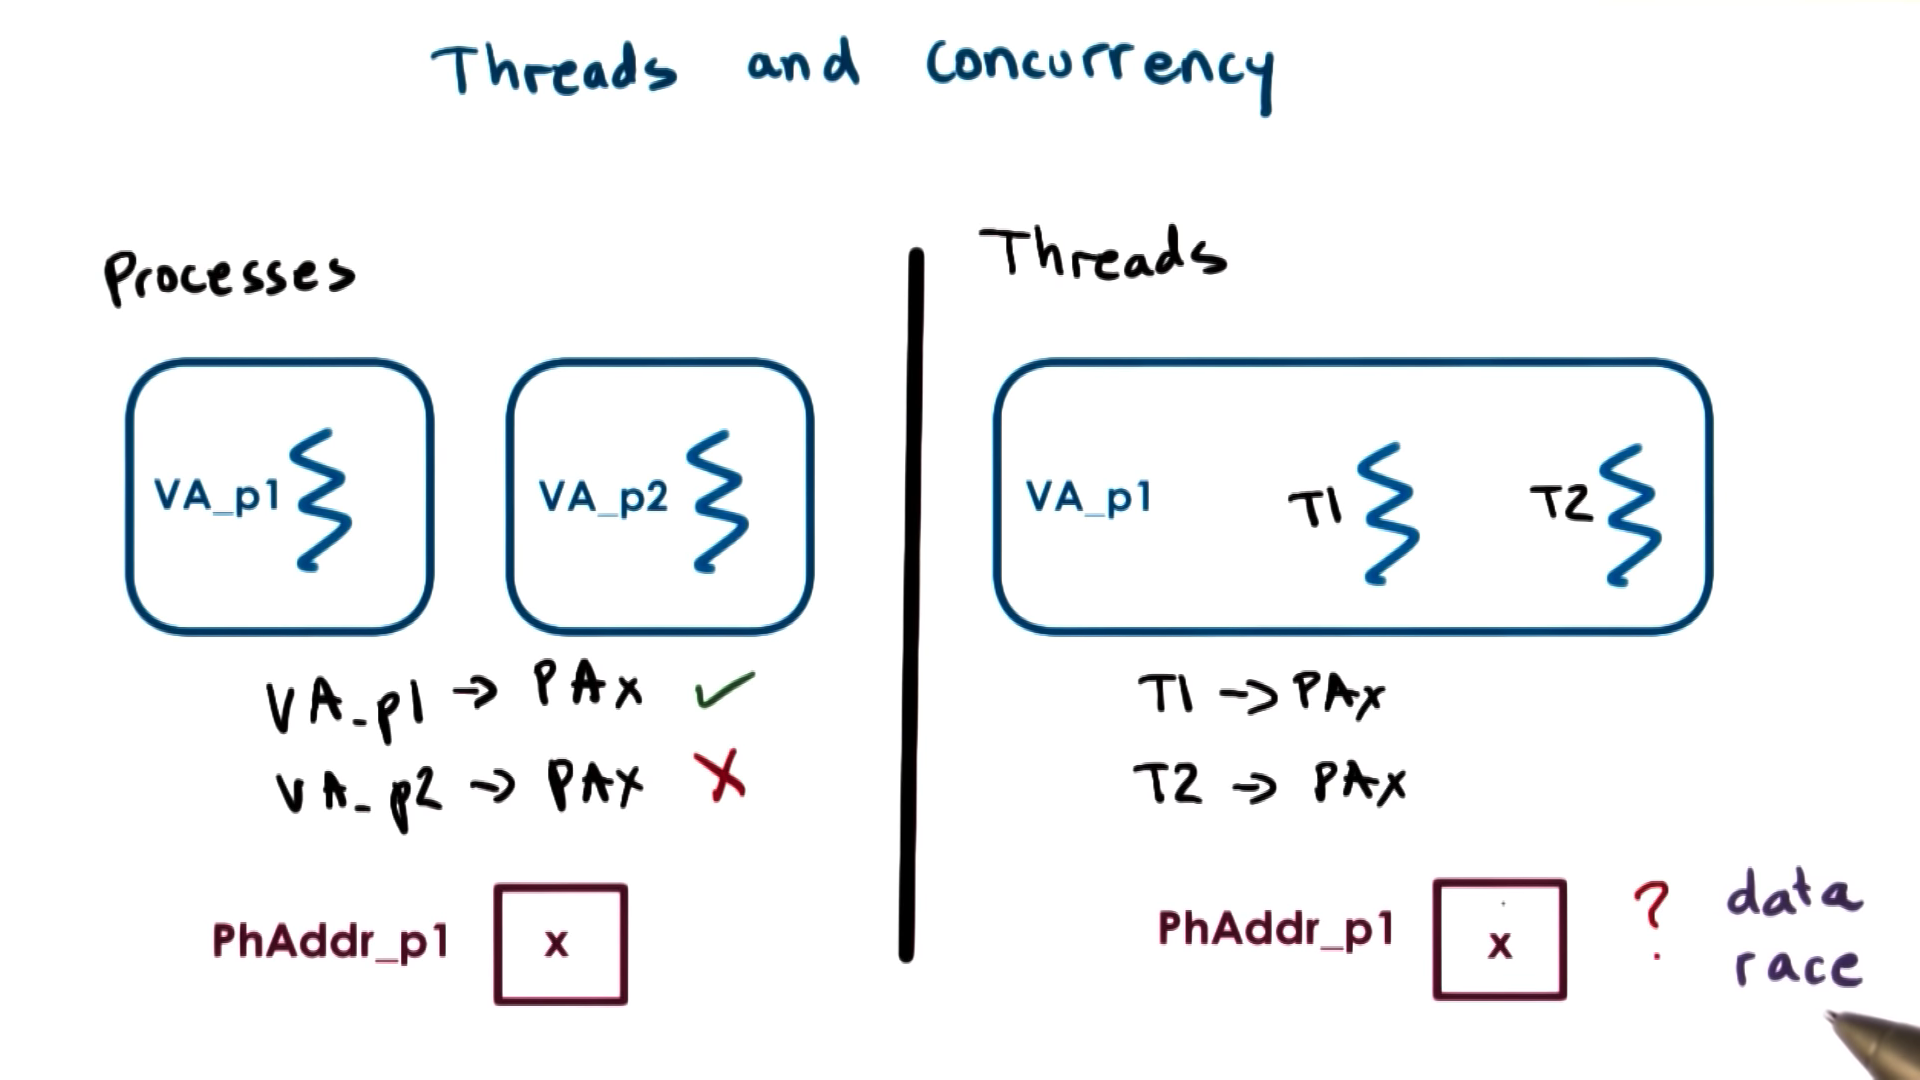 Threads and concurrency
Processes
VA_p1
VA_p2
VA_p1 → PAx ✓
VA_p2 → PAx X
PhAddr_p1
x
Threads
VA_p1
T1
T2
T1 → PAx
T2 → PAx
PhAddr_p1
x
?
data
race